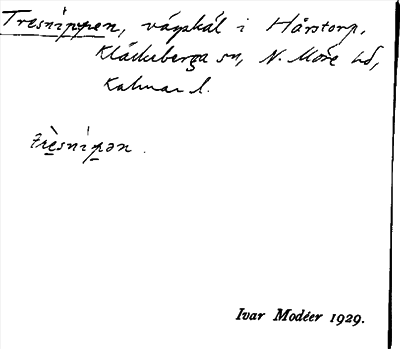 Tresnippen, vägskäl i Hårstorp,
Kläckeberga sn, N. Möre hd,
Kalmar l.
trèsnípən.
Ivar Modéer 1929.